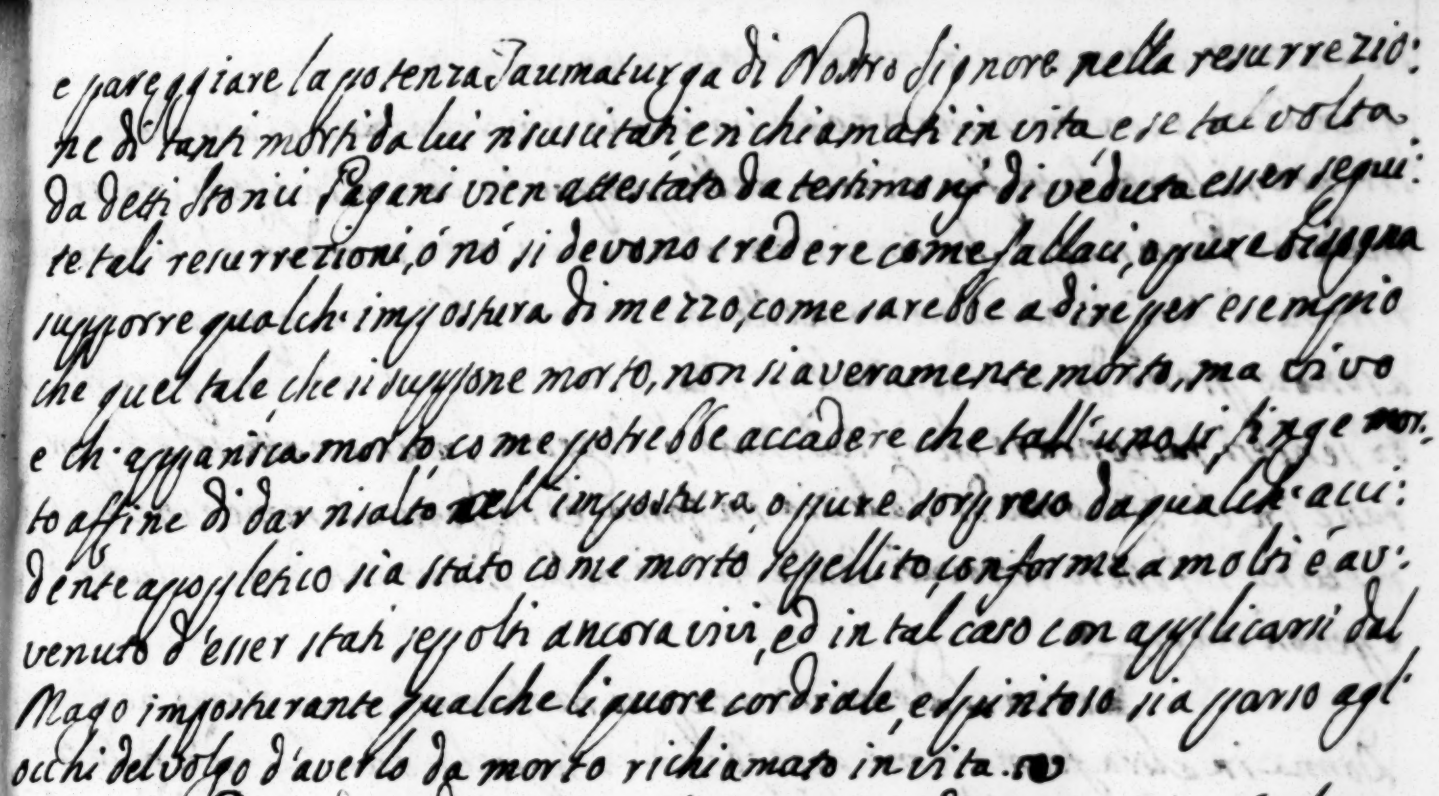 e pareggiare la potenza Taumaturga di Nostro Signore nella resurrezio:
ne di tanti morti da lui risuscitati e richiamati in vita, e se tal volta
da detti Storici Pagani vien attestato da testimonÿ di veduta esser segui:
te tali resurrezioni, ó nó si devono credere come fallaci, oppure bisogna
supporre qualch' impostura di mezzo, come sarebbe a dire per esempio
che quel tale, che si suppone morto, non sia veramente morto, ma vivo
e ch' apparisca morto, come potrebbe accadere che tall'uno si finge mor:
to affine di dar risalto nell' impostura, o pure sorpreso da qualch' acci:
dente appopletico sia stato come morto seppellito, conforme a molti é av:
venuto d'esser stati seppolti ancora vivi, ed in tal caso con applicarsi dal
Mago imposturante qualche liquore cordiale, e spiritoso sia parso agl'
occhi del volgo d'averlo da morto richiamato in vita.